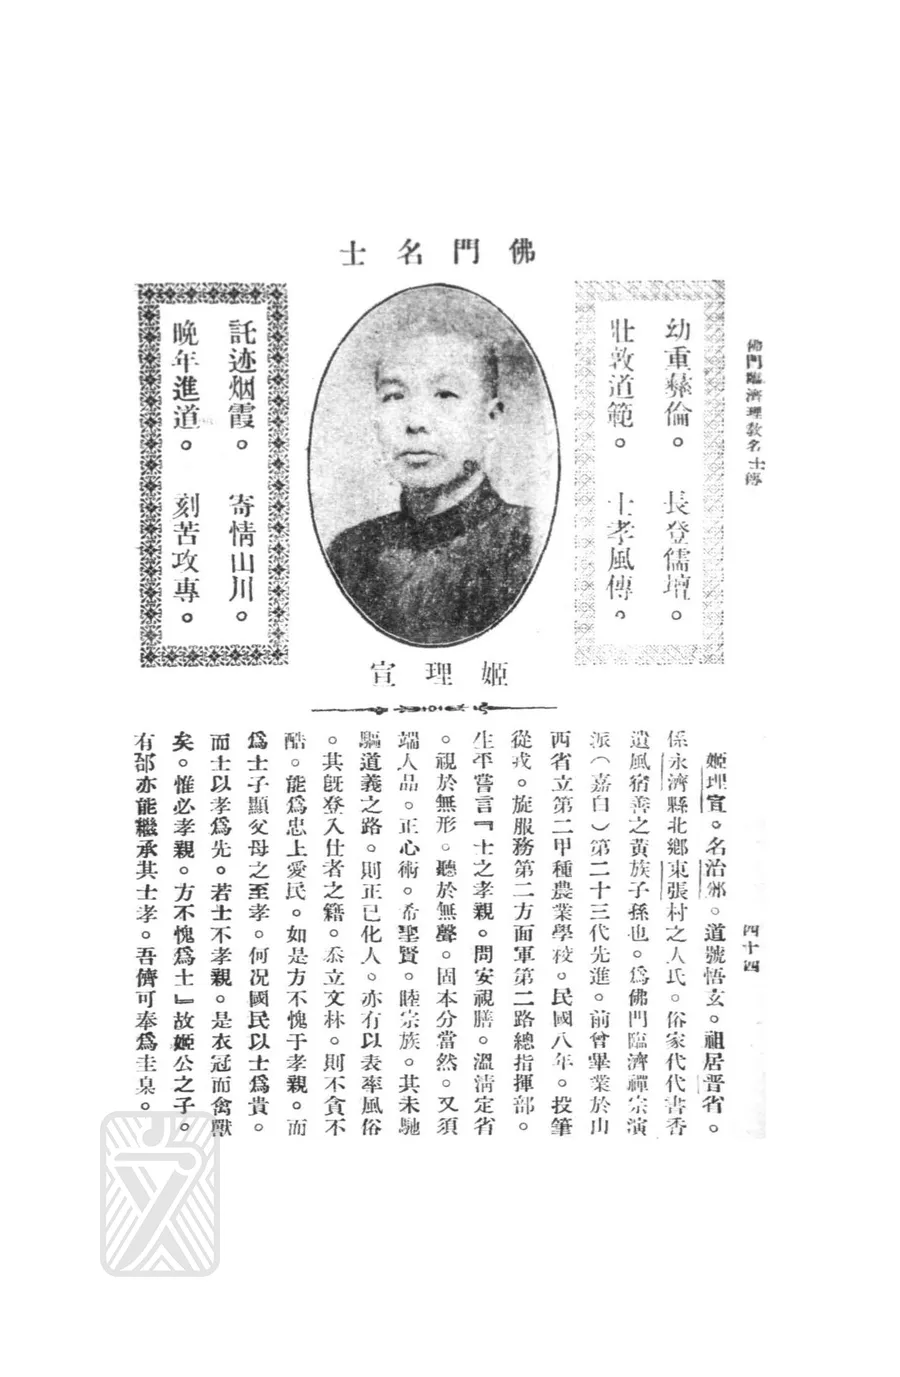 佛門臨濟理教名士傳
四十四
佛門名士
幼重彝倫。長登儒壇。
壯敦道範。士孝風傳。
託迹烟霞。寄情山川。
晚年進道。刻苦攻專。
姬理宣
姬理宣。名治邠。道號悟玄。祖居晋省。
係永濟縣北鄉東張村之人氏。俗家代代書香
遺風宿善之黃族子孫也。爲佛門臨濟禪宗演
派（嘉白）第二十三代先進。前曾畢業於山
西省立第二甲種農業學校。民國八年。投筆
從戎。旋服務第二方面軍第二路總指揮部。
生平嘗言『士之孝親。問安視膳。溫凊定省
。視於無形。聽於無聲。固本分當然。又須
端人品。正心術。希聖賢。睦宗族。其未馳
驅道義之路。則正己化人。亦有以表率風俗
。其旣登入仕者之籍。忝立文林。則不貪不
酷。能爲忠上愛民。如是方不愧于孝親。而
爲士子顯父母之至孝。何况國民以士爲貴。
而士以孝爲先。若士不孝親。是衣冠而禽獸
矣。惟必孝親。方不愧爲士』故姬公之子。
有邰亦能繼承其士孝。吾儕可奉爲圭臬。